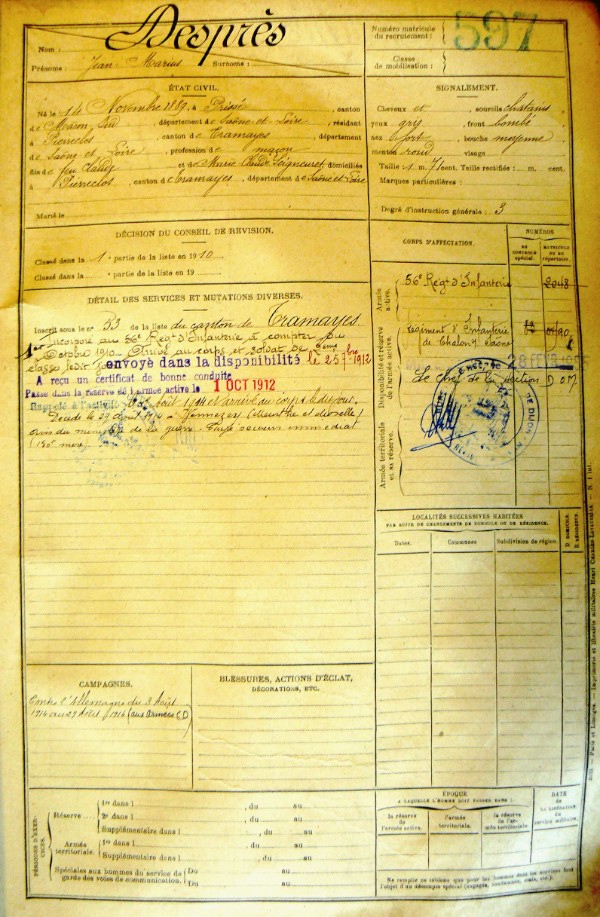 Nom : Desprès
Prénoms : Jean Marius Surnoms :
Numéro matricule du recrutement : 597
Classe de mobilisation :
ÉTAT CIVIL.
Né le 14 Novembre 1889, à Prissé, canton
de Mâcon Sud, département de Saône et Loire, résidant
à Pierreclos, canton de Tramayes, département
de Saône et Loire, profession de maçon
fils de feu Claude et de Marie Claude Seigneuret, domiciliés
à Pierreclos, canton de Tramayes, département de Saône et Loire
Marié le
SIGNALEMENT.
Cheveux et sourcils châtains
yeux gris, front bombé
nez fort, bouche moyenne
menton rond visage
Taille : 1 m. 71 cent. Taille rectifiée : m. cent.
Marques particulières :
Degré d'instruction générale : 3
DÉCISION DU CONSEIL DE REVISION.
Classé dans la 1e partie de la liste en 1910
Classé dans la partie de la liste en 19
DÉTAIL DES SERVICES ET MUTATIONS DIVERSES.
Inscrit sous le n° 33 de la liste du canton de Tramayes.
Incorporé au 56e Reg. d'Infanterie à compter du
Octobre 1910. Arrivé au corps et soldat de 2ème
classe ledit jour
envoyé dans la disponibilité le 25 7bre 1912
A reçu un certificat de bonne conduite
Passe dans la réserve de l'armée active le 1 OCT 1912
Rappelé à l'activité août 1914 et arrivé au corps le dit jour.
Décédé le 29 août 1914 à (Meurthe et Moselle)
de la guerre. Payé secours immédiat
150f
CORPS D'AFFECTATION.
NUMÉROS
AU CONTRÔLE SPÉCIAL.
MATRICULE OU AU RÉPERTOIRE.
Armée active.
56e Regt d'Infanterie 2048
Disponibilité et réserve de l'armée active.
Régiment d'Infanterie
de Chalon s/ Saône
28 FEV
Le Chef de la Section
Armée territoriale et sa réserve.
LOCALITÉS SUCCESSIVES HABITÉES
PAR SUITE DE CHANGEMENTS DE DOMICILE OU DE RÉSIDENCE.
Dates. Communes. Subdivision de région. D. DOMICILE. R. RÉSIDENCE.
CAMPAGNES.
Contre l'Allemagne du 3 Août
1914 au 29 Août 1914 (aux Armées CD)
BLESSURES, ACTIONS D'ÉCLAT,
DÉCORATIONS, ETC.
PÉRIODES D'EXERCICES.
Réserve
1re dans l , du au
2e dans l , du au
Supplémentaire dans l , du au
Armée territoriale.
1re dans l , du au
Supplémentaire dans l , du au
Spéciales aux hommes du service de garde des voies de communication.
Du au
Du au
ÉPOQUE
A LAQUELLE L'HOMME DOIT PASSER DANS :
la réserve de l'armée active.
l'armée territoriale.
la réserve de l'armée territoriale.
DATE
DE LA LIBÉRATION DU service militaire.